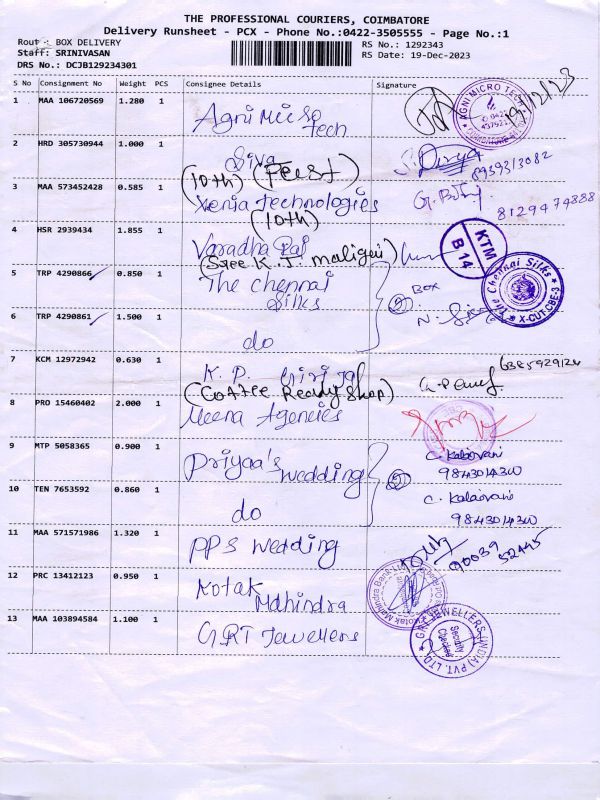 THE PROFESSIONAL COURIERS, COIMBATORE
Delivery Runsheet - PCX - Phone No.:0422-3505555 - Page No.:1
Route : BOX DELIVERY
Staff: SRINIVASAN
DRS No.: DCJB129234301
RS No.: 1292343
RS Date: 19-Dec-2023
S No Consignment No Weight PCS Consignee Details Signature
1 MAA 106720569 1.280 1 Agni Micro Tech 19/12/23
AGNI MICRO TECH
2 HRD 305730944 1.000 1 Siva
(10th) (Feest)
8939313082
3 MAA 573452428 0.585 1 Xenia Technologies
(10th)
8129474888
4 HSR 2939434 1.855 1 Varadha Raj
(Sree K.J. maligai)
KTM
B 14
5 TRP 4290866 0.850 1 The chennai Silks
2 BOX
The Chennai Silks
X-CUT-CBE-3
6 TRP 4290861 1.500 1 do
7 KCM 12972942 0.630 1 K. P. Giriraj
(Coffee Ready Shop)
6385929124
8 PRO 15460402 2.000 1 Meena Agencies
9 MTP 5058365 0.900 1 Priyaa's wedding
2
C. Kalaivani
9843014300
10 TEN 7653592 0.860 1 do
C. Kalaivani
9843014300
11 MAA 571571986 1.320 1 PPS wedding
90039 52495
12 PRC 13412123 0.950 1 Kotak Mahindra
Kotak Mahindra Bank Ltd
13 MAA 103894584 1.100 1 GRT Jewellers
GRT JEWELLERS (INDIA) PVT. LTD.
Security Checked